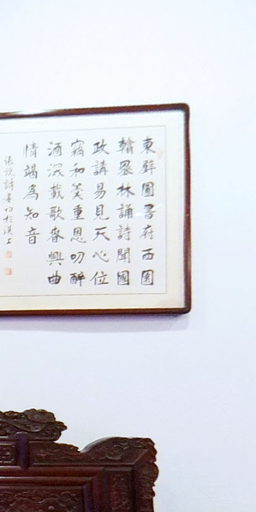 東壁圖書府西園
翰墨林誦詩聞國
政講易見天心位
竊和羹重恩叨醉
酒深載歌春興曲
情竭為知音
張說詩